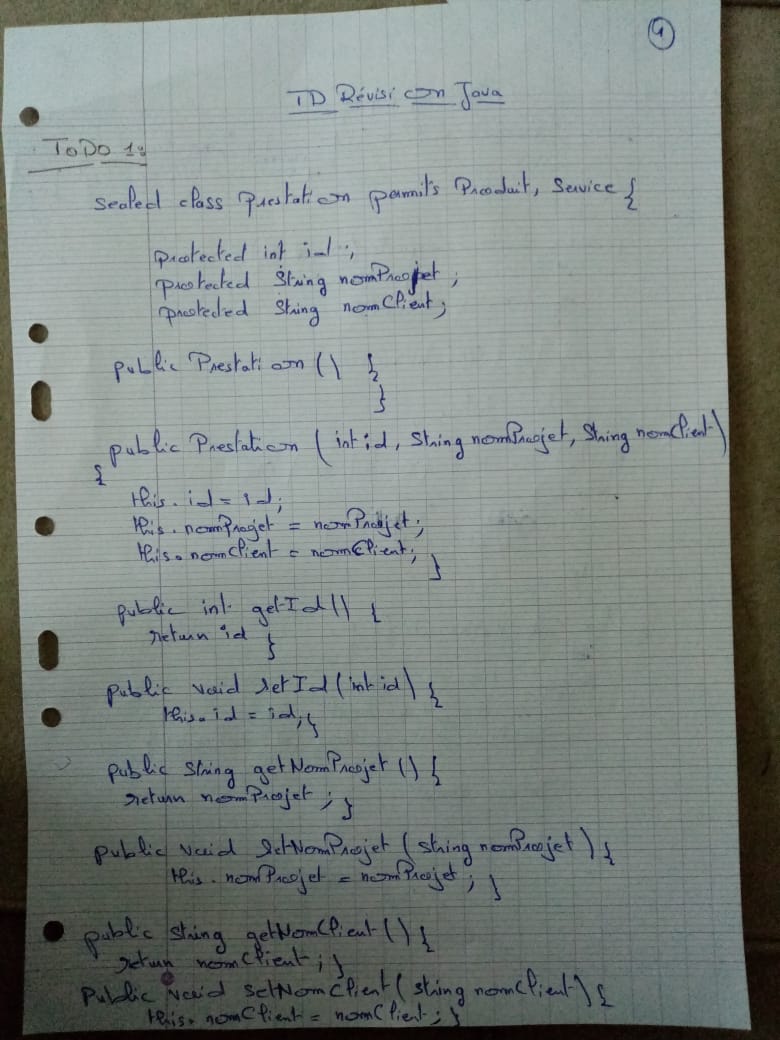 4
TD Révision Java
ToDo 1:
sealed class Prestation permits Produit, Service {
protected int id ;
protected String nomProjet ;
protected String nomClient ;
public Prestation () {
}
public Prestation ( int id, String nomProjet, String nomClient )
{
this.id = id;
this.nomProjet = nomProjet ;
this.nomClient = nomClient ; }
public int getId() {
return id }
public void setId (int id) {
this.id = id; }
public String getNomProjet () {
return nomProjet ; }
public void setNomProjet ( String nomProjet ) {
this.nomProjet = nomProjet ; }
public String getNomClient () {
return nomClient ; }
Public void setNomClient ( String nomClient ) {
this.nomClient = nomClient ; }